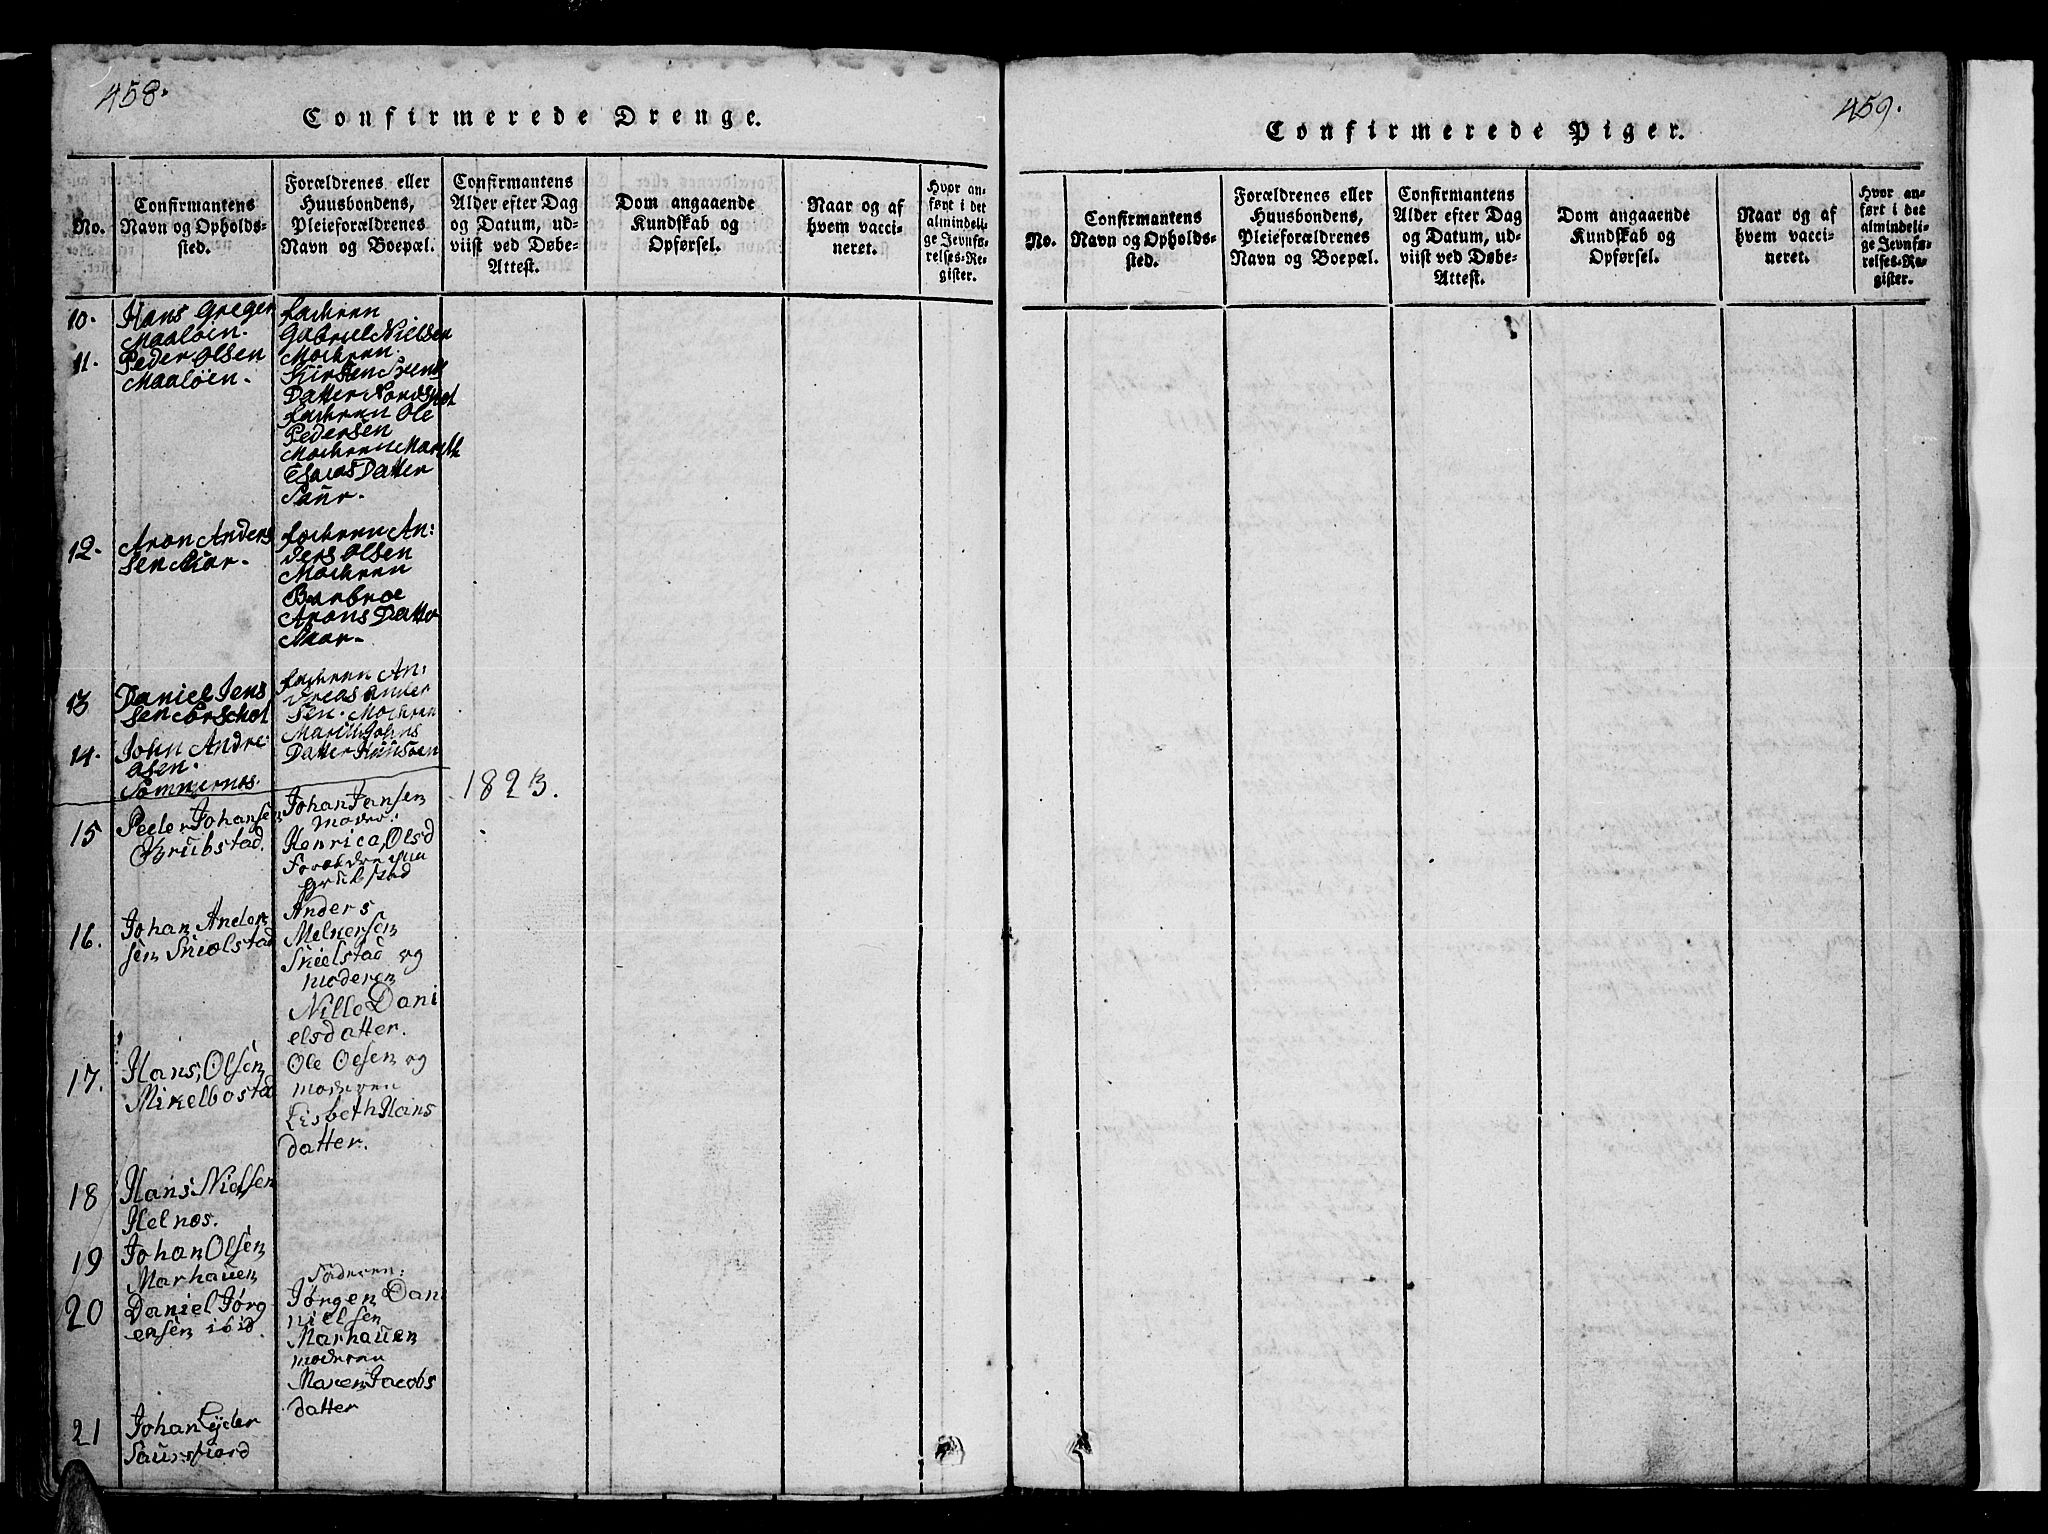 458.
Confirmerede Drenge.
No.
Confirmantens
Navn og Opholds-
sted.
Forældrenes eller
Huusbondens,
Pleieforældrenes
Navn og Boepæl.
Confirmantens
Alder efter Dag
og Datum, ud-
viist ved Døbe-
Attest.
Dom angaaende
Kundskab og
Opførsel.
Naar og af
hvem vacci-
neret.
Hvor an-
ført i det
almindeli-
ge Jevnfø-
relses-Re-
gister.
10. Hans Greger
Maaløen.
11. Peder Olsen
Maaløen.
Gabriel Nielsen
Datter Nordshot
Ole
Pedersen
Datter
Saur.
12. Aron Anders
sen Skar.
An:
ders Olsen
Barbroe
Arons Datter
Skar.
13 Daniel Jens
sen
14. John Andre
asen.
Sommernes.
An:
dreas Ander
sen.
Marith Johns
Datter
1823.
15 Peder Johansen
Grubstad.
Johan Jansen
moder:
Henrica, Olsd
Grubstad
16. Johan Ander
sen Skiolstad
Anders
Melkersen
Skielstad og
moderen
Nille Dani
elsdatter.
17. Hans, Olsen
Mikelbostad
Ole Olsen og
moderen
Lisbeth Hans
datter.
18 Hans Nielsen
Helnæs.
19 Johan Olsen
Marhauen
20 Daniel Jørg
ensen ibid.
Faderen:
Jørgen Dan
nielsen
Marhauen
moderen
Maren Jacobs
datter
21 Johan Lyder
Saursfiord
459.
Confirmerede Piger.
No.
Confirmantens
Navn og Opholds-
sted.
Forældrenes eller
Huusbondens,
Pleieforældrenes
Navn og Boepæl.
Confirmantens
Alder efter Dag
og Datum, ud-
viist ved Døbe-
Attest.
Dom angaaende
Kundskab og
Opførsel.
Naar og af
hvem vacci-
neret.
Hvor an-
ført i det
almindeli-
ge Jevnfø-
relses-Re-
gister.